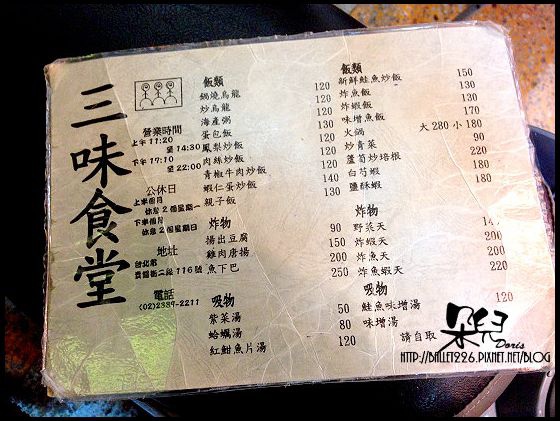 三味食堂
營業時間
上午11:20
至14:30
下午17:10
至22:00
公休日
上半個月
休息2個星期一
下半個月
休息2個星期日
地址
台北市
貴陽街二段116號
電話
(02)2389-2211
飯類
鍋燒烏龍 120
炒烏龍 120
海產粥 120
蛋包飯 130
鳳梨炒飯 120
肉絲炒飯 120
青椒牛肉炒飯 140
蝦仁蛋炒飯 130
親子飯 130
炸物
揚出豆腐 90
雞肉唐揚 150
魚下巴 200
250
吸物
紫菜湯 50
蛤蠣湯 80
紅魽魚片湯 120
飯類
新鮮鮭魚炒飯 150
炸魚飯 130
炸蝦飯 130
味增魚飯 170
火鍋 大280小180
炒青菜 90
蘆筍炒培根 220
白芍蝦 180
鹽酥蝦 180
炸物
野菜天 140
炸蝦天 200
炸魚天 200
炸魚蝦天 220
吸物
鮭魚味增湯 120
味增湯
請自取
朵兒
Doris
HTTP://BALLET226.PIXNET.NET/BLOG